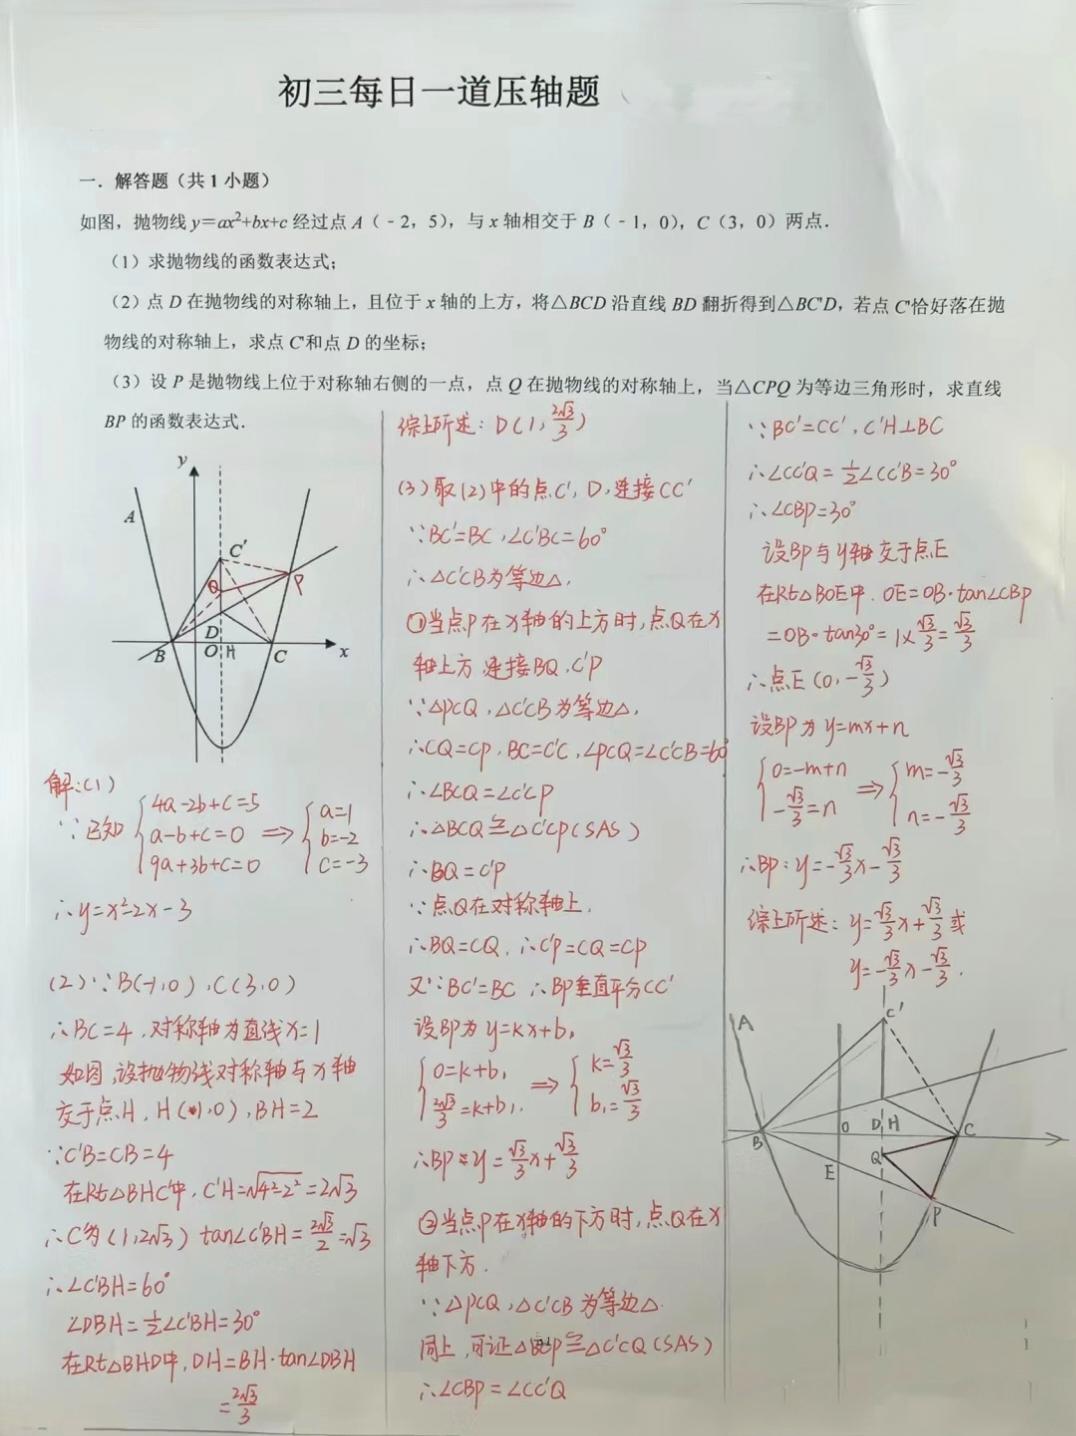 初三每日一道压轴题
一．解答题（共1小题）
如图，抛物线y＝ax²+bx+c经过点A（﹣2，5），与x轴相交于B（﹣1，0），C（3，0）两点．
（1）求抛物线的函数表达式；
（2）点D在抛物线的对称轴上，且位于x轴的上方，将△BCD沿直线BD翻折得到△BC'D，若点C'恰好落在抛
物线的对称轴上，求点C'和点D的坐标；
（3）设P是抛物线上位于对称轴右侧的一点，点Q在抛物线的对称轴上，当△CPQ为等边三角形时，求直线
BP的函数表达式．
y
A
C'
Q
P
D
B
O
H
C
x
解:(1)
∵已知{4a-2b+c=5
a-b+c=0
9a+3b+c=0
⇒{a=1
b=-2
c=-3
∴y=x²-2x-3
(2)∵B(-1,0),C(3,0)
∴BC=4,对称轴为直线x=1
如图,设抛物线对称轴与x轴
交于点H,H(1,0),BH=2
∵C'B=CB=4
在Rt△BHC'中,C'H=√4²-2²=2√3
∴C'为(1,2√3) tan∠C'BH=2√3/2=√3
∴∠C'BH=60°
∠DBH=½∠C'BH=30°
在Rt△BHD中,DH=BH·tan∠DBH
=2√3/3
综上所述:D(1,2√3/3)
(3)取(2)中的点C',D,连接CC'
∵BC'=BC,∠C'BC=60°
∴△C'CB为等边△,
①当点P在x轴的上方时,点Q在x
轴上方,连接BQ,C'P
∵△PCQ,△C'CB为等边△,
∴CQ=CP,BC=C'C,∠PCQ=∠C'CB=60°
∴∠BCQ=∠C'CP
∴△BCQ≌△C'CP(SAS)
∴BQ=C'P
∵点Q在对称轴上,
∴BQ=CQ,∴C'P=CQ=CP
又∵BC'=BC ∴BP垂直平分CC'
设BP为y=kx+b₁
{0=-k+b₁
2√3/3=k+b₁.
⇒{k=√3/3
b₁=√3/3
∴BP:y=√3/3x+√3/3
②当点P在x轴的下方时,点Q在x
轴下方.
∵△PCQ,△C'CB为等边△
同上,可证△BCP≌△C'CQ(SAS)
∴∠CBP=∠CC'Q
∵BC'=CC',C'H⊥BC
∴∠CC'Q=½∠CC'B=30°
∴∠CBP=30°
设BP与y轴交于点E
在Rt△BOE中.OE=OB·tan∠CBP
=OB·tan30°=1×√3/3=√3/3
∴点E(0,-√3/3)
设BP为y=mx+n
{0=-m+n
-√3/3=n
⇒{m=-√3/3
n=-√3/3
∴BP:y=-√3/3x-√3/3
综上所述:y=√3/3x+√3/3或
y=-√3/3x-√3/3.
A
C'
B
O
D
H
C
Q
E
P